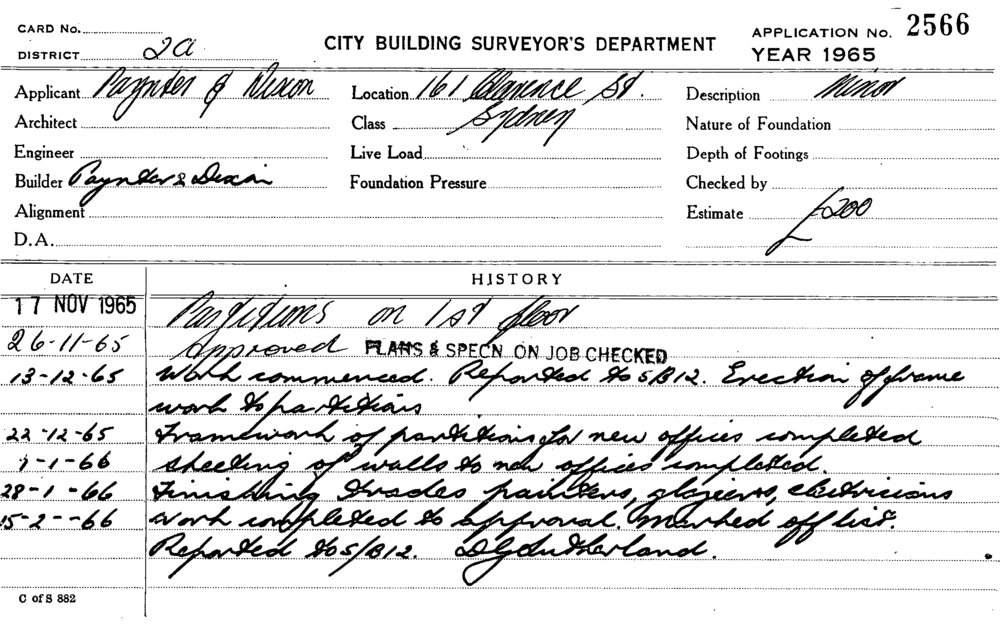 CARD No.
DISTRICT 2a
CITY BUILDING SURVEYOR'S DEPARTMENT
APPLICATION No. 2566
YEAR 1965
Applicant Paynter & Dixon
Location 161 Clarence St.
Description Minor
Architect
Class Sydney
Nature of Foundation
Engineer
Live Load
Depth of Footings
Builder Paynter & Dixon
Foundation Pressure
Checked by
Alignment
Estimate £200
D.A.
DATE HISTORY
17 NOV 1965 Partitions on 1st floor
26-11-65 Approved PLANS & SPECN ON JOB CHECKED
13-12-65 Work commenced. Reported to S/B12. Erection of frame
work to partitions
22-12-65 Framework of partitions for new offices completed
-1-66 Sheeting of walls to new offices completed.
28-1-66 Finishing trades painters, glaziers, electricians
15-2-66 Work completed to approval. Marked off list.
Reported to S/B12. D G Sutherland.
C of S 882